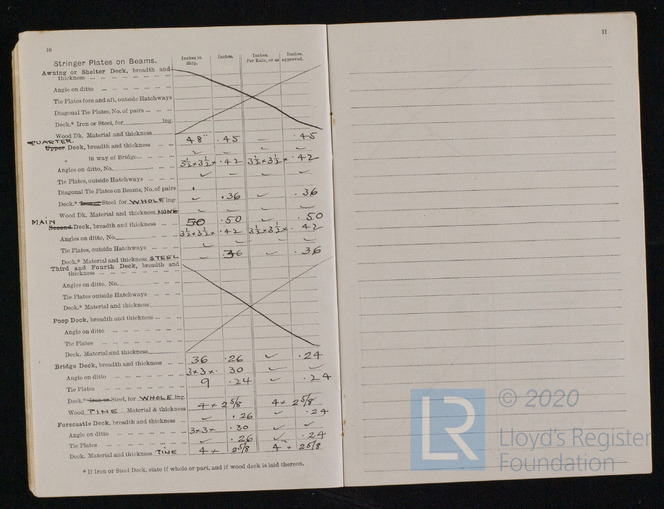 10
Stringer Plates on Beams.
Inches in Ship. Inches. Inches Per Rule, or as approved. Inches.
Awning or Shelter Deck, breadth and
thickness
Angle on ditto
Tie Plates fore and aft, outside Hatchways
Diagonal Tie Plates, No. of pairs
Deck.* Iron or Steel, for ing.
Wood Dk. Material and thickness
QUARTER 48" .45 — .45
Upper Deck, breadth and thickness
" in way of Bridge
Angles on ditto, No. 3½×3½× .42 3½×3½× .42
Tie Plates, outside Hatchways
Diagonal Tie Plates on Beams, No. of pairs
Deck.* Iron or Steel for WHOLE ing. .36 .36
Wood Dk. Material and thickness NONE
MAIN
Second Deck, breadth and thickness 50 .50 .50
Angles on ditto, No. 3½×3½× .42 3½×3½× .42
Tie Plates, outside Hatchways
Deck.* Material and thickness STEEL 36 .36
Third and Fourth Deck, breadth and
thickness
Angles on ditto. No.
Tie Plates outside Hatchways
Deck.* Material and thickness
Poop Deck, breadth and thickness
Angle on ditto
Tie Plates
Deck. Material and thickness
Bridge Deck, breadth and thickness 36 .26 .24
Angle on ditto 3×3× .30
Tie Plates 9 .24 .24
Deck.* Iron or Steel, for WHOLE ing.
Wood PINE Material & thickness 4 × 2⅝ 4 × 2⅝
Forecastle Deck, breadth and thickness .26 .24
Angle on ditto 3×3× .30
Tie Plates .26 .24
Deck. Material and thickness PINE 4 × 2⅝ 4 × 2⅝
* If Iron or Steel Deck, state if whole or part, and if wood deck is laid thereon.
11
© 2020
LR
Lloyd's Register
Foundation